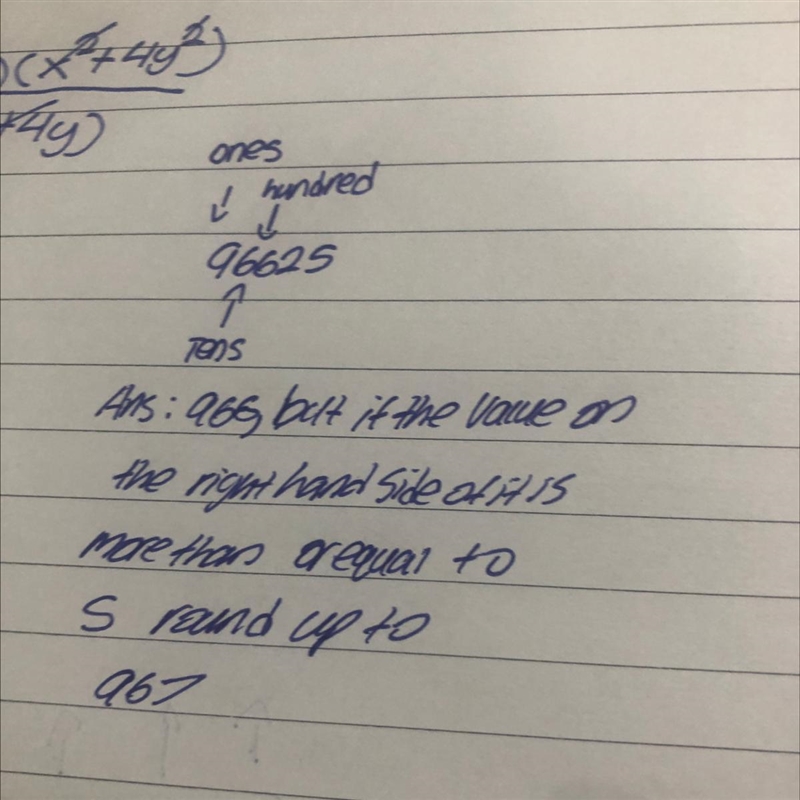 )(x²+4y²)
+4y)
ones
hundred
96625
Tens
Ans: 966, but if the value on
the right hand side of it is
more than or equal to
5 round up to
967